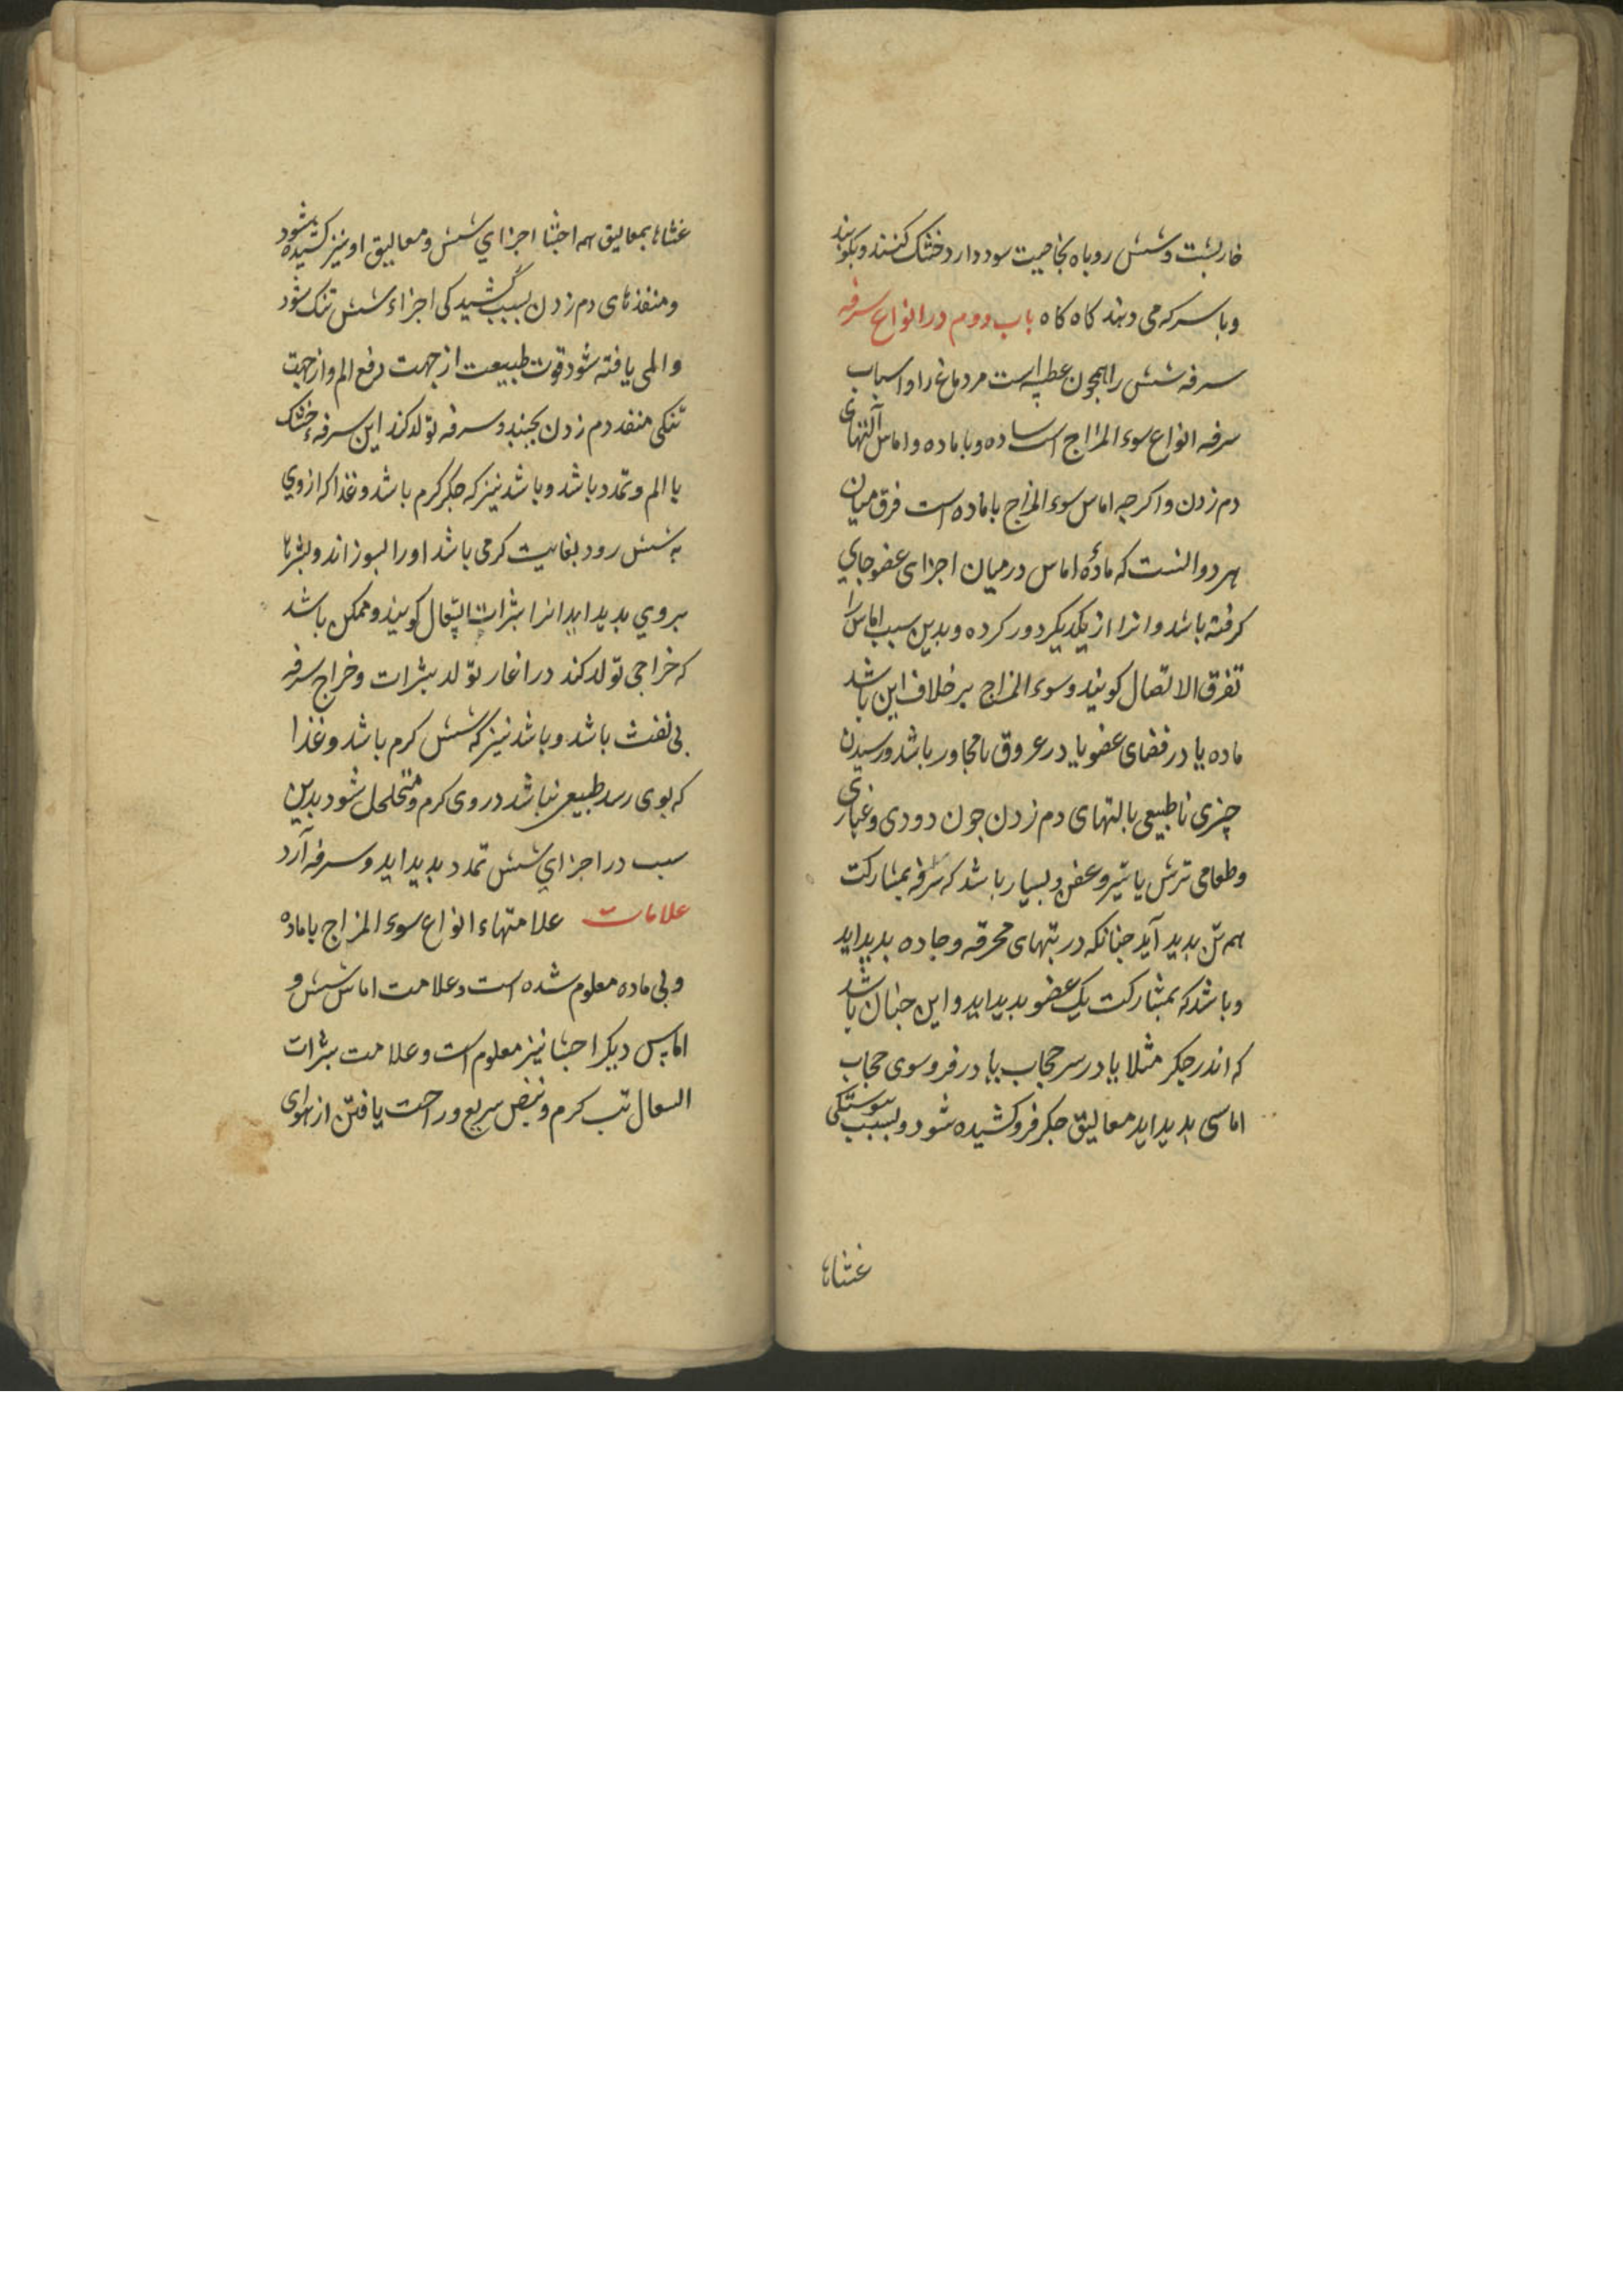 خاربشت و شش روباه بخاصیت سود دارد خشک کنند و بکوبند
و با سرکه می دهند کاه کاه باب دوم در انواع سرفه
سرفه شش را همچون عطسه است مر دماغ را و اسباب
سرفه انواع سوء المزاج است ساده و با ماده و اماس آلتهای
دم زدن و اکرچه اماس سوء المزاج با ماده است فرق میان
هر دو انست که مادّه اماس در میان اجزای عضو جای
کرفته باشد و انرا از یکدیکر دور کرده و بدین سبب اماس را
تفرق الاتصال کویند و سوء المزاج بر خلاف این باشد
ماده یا در فضای عضو یا در عروق با مجاور باشد و رسیدن
چیزی ناطبیعی بالتهای دم زدن جون دودی و غباری
و طعامی ترش یا تیز و عفن و بسیار باشد که سرفه بمشارکت
هم تن بدید آید جنانکه در تبهای محرقه و حاده بدید اید
و باشد که بمشارکت یک عضو بدید اید و این جنان باشد
که اندر جکر مثلا یا در سر حجاب یا در فروسوی حجاب
اماسی بدید اید معالیق جکر فرو کشیده شود و بسبب بیوستکی
غشاها
غشاها بمعالیق همه احشا اجزای شش و معالیق او نیز کشیده شود
و منفذهای دم زدن بسبب کشیدکی اجزاء شش تنک شود
و المی یافته شود قوت طبیعت از جهت دفع الم و از جهت
تنکی منفذ دم زدن بجنبد و سرفه تولد کند این سرفهء خشک
با الم و تمدد باشد و باشد نیز که جکر کرم باشد و غذا که از وی
به شش رود بغایت کرمی باشد اورا بسوزاند و بثرها
بروی بدید اید انرا بثرات السعال کویند و ممکن باشد
که خراجی تولد کند در اغاز تولد بثرات و خراج سرفه
بی نفث باشد و باشد نیز که شش کرم باشد و غذا
که بوی رسد طبیعی نباشد در وی کرم و متخلخل شود بدین
سبب در اجزای شش تمدد بدید اید و سرفه آرد
علامات علامتهاء انواع سوء المزاج با ماده
و بی ماده معلوم شده است و علامت اماس شش و
اماس دیکر احشا نیز معلوم است و علامت بثرات
السعال تب کرم و نبض سریع و راحت یافتن از هوای